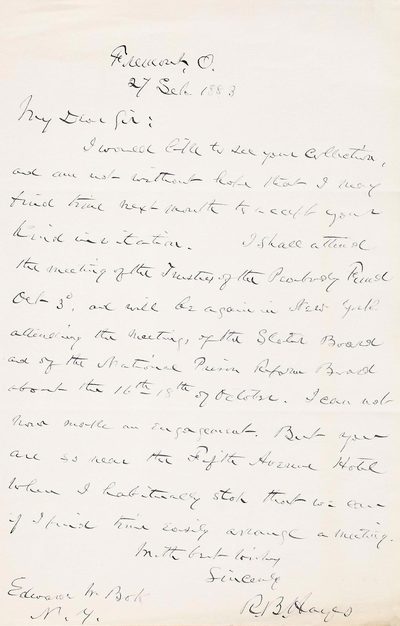 Fremont, O.
27 Sep 1883
My Dear Sir:
I would like to see your collection,
and am not without hope that I may
find time next month to accept your
kind invitation. I shall attend
the meeting of the Trustees of the Peabody Fund
Oct 3d, and will be again in New York
attending the meetings of the Slater Board
and of the National Prison Reform Board
about the 16th - 19th of October. I can not
now make an engagement. But you
are so near the Fifth Avenue Hotel
where I habitually stop that we can
if I find time easily arrange a meeting.
With best wishes
Sincerely
R. B. Hayes
Edward W Bok
N. Y.